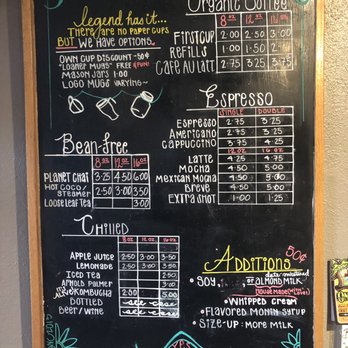 Organic Coffee
8 oz 12 oz 16 oz
First Cup 2.00 2.50 3.00
Refills .50
Cafe Au Lait 2.75 3.25 3.75
legend has it...
There are no paper cups
But we have options.
Own Cup Discount -50¢
"Loaner Mugs" Free & Fun!
Mason Jars 1.00
Logo Mugs Varying~
Espresso
Single Double
Espresso 2.75 3.25
Americano 2.75 3.25
Cappuccino 3.75 4.25
12 oz 16 oz
Latte 4.25 4.75
Mocha 4.50 5.00
Mexican Mocha 4.50 5.00
Breve 4.50 5.00
Extra Shot 1.00 1.25
Bean-Free
8 oz 12 oz 16 oz
Planet Chai 3.25 4.50 6.00
Hot Coco/
Steamer 2.50 3.00 3.50
Loose Leaf Tea 3.00
Chilled
8 oz 12 oz 16 oz
Apple Juice 2.50 3.00 3.50
Lemonade 2.50 3.00 3.50
Iced Tea 2.50
Arnold Palmer 3.50
Kombucha 5.00
Bottled see case
Beer/Wine see case
Additions 50¢
• Soy, or Almond Milk
(House Made w/ Love)
• Whipped Cream
• Flavored Monin Syrup
• Size-Up: More Milk